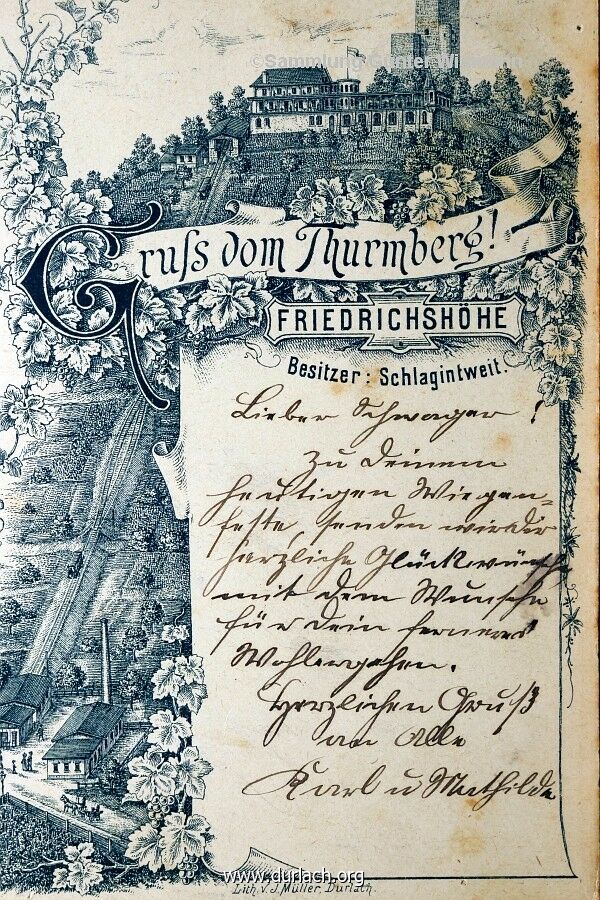 ©Sammlung Günter Widmann
Gruß vom Thurmberg!
FRIEDRICHSHÖHE
Besitzer: Schlagintweit.
Lieber Schwager!
Zu Deinem
heutigen Wiegen-
feste, senden wir dir
herzliche Glückwünsche
mit dem Wunsche
für dein ferneres
Wohlergehen.
Herzlichen Gruß
an Alle
Karl u Mathilde
www.durlach.org
Lith. v. J. Müller, Durlach.